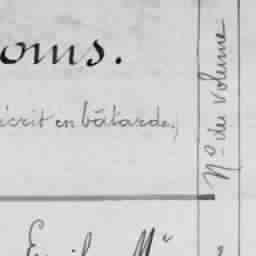 oms.
écrit en bâtarde,
N° du volume
Emil Mle